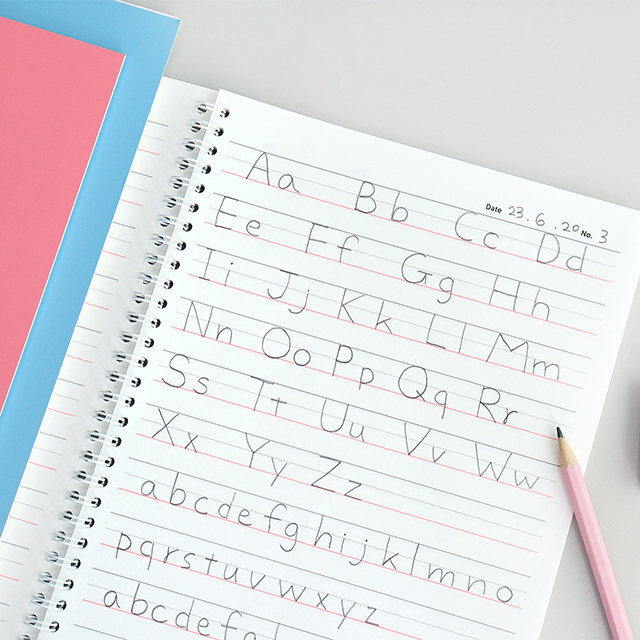 Date 23.6.20 No. 3
Aa Bb Cc Dd
Ee Ff Gg Hh
Ii Jj Kk Ll Mm
Nn Oo Pp Qq Rr
Ss Tt Uu Vv Ww
Xx Yy Zz
abcdefghijklmno
pqrstuvwxyz
abcdefgh